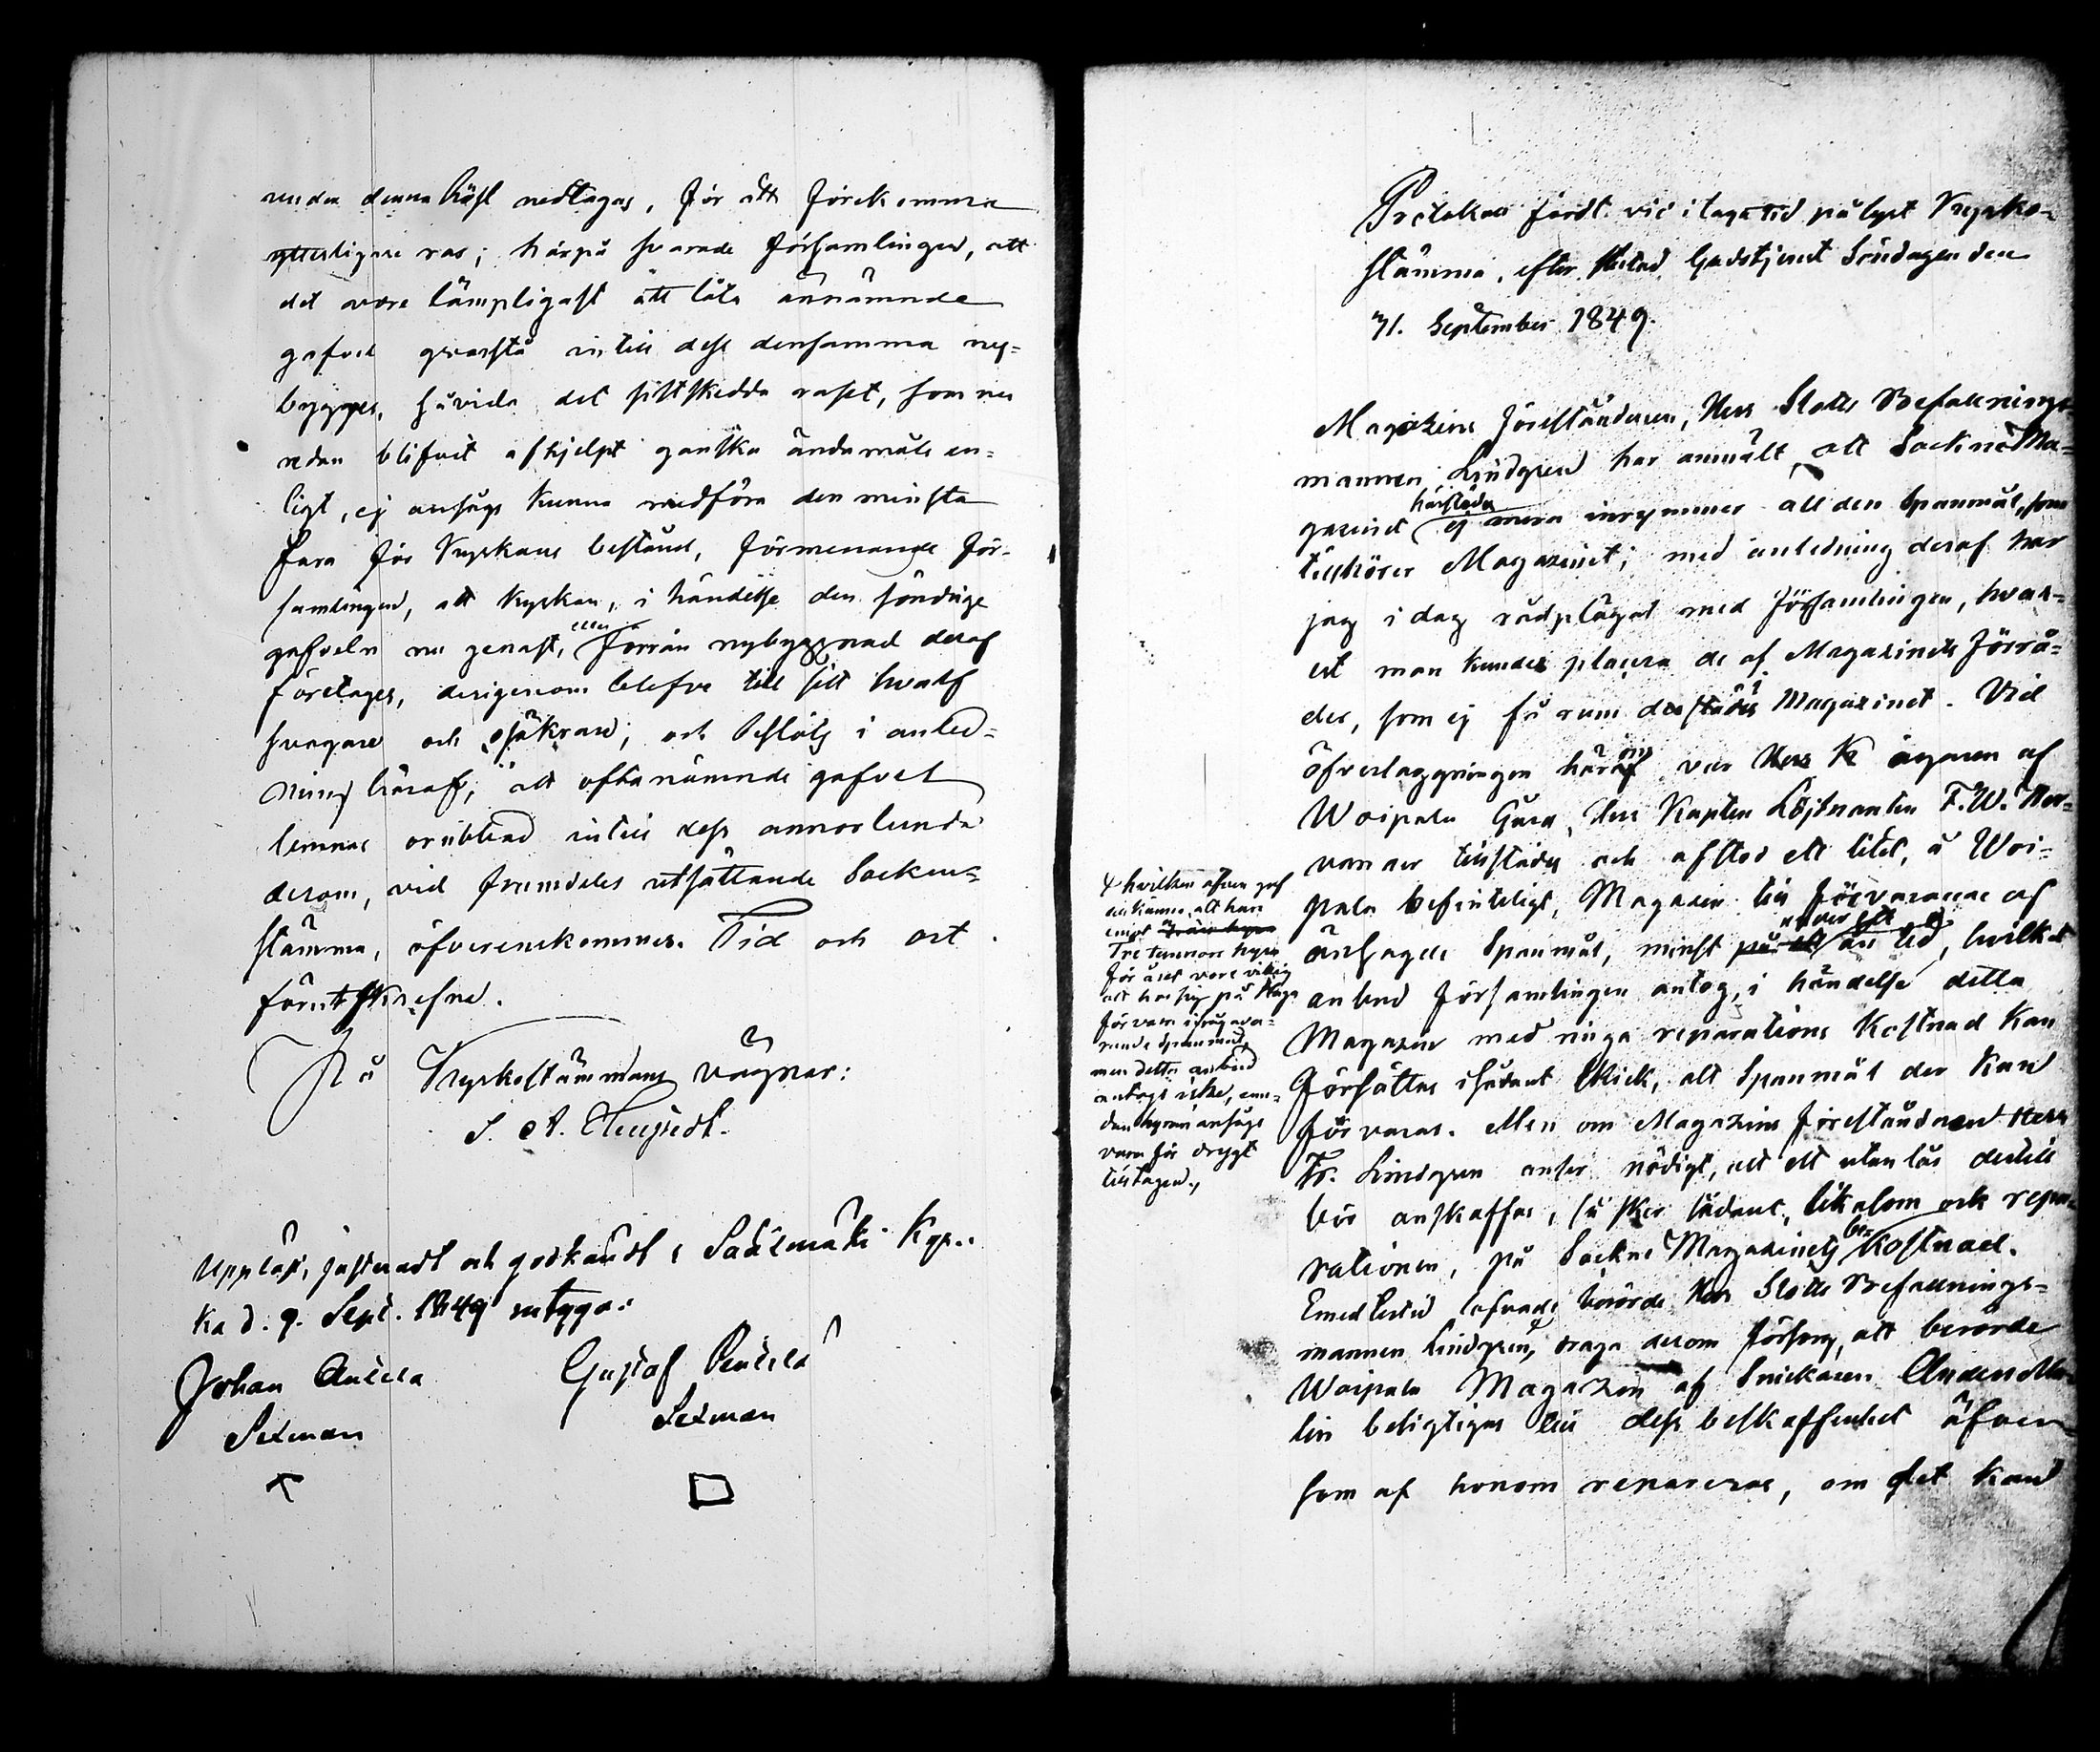 under denna höst nedtagas, för att förekomma
ytterligare ras; härpå svarade Församlingen, att
det vore lämpligast att låta ännämnde
gafvel qvarstå intill dess densamma ny-
bygges, såvida det sistskedda raset, som nu
redan blifvit afhjelpt ganska ändamåls en-
ligt, ej ansågs kunna medföra den minsta
fara för Kyrkans bestånd, förmenande För-
samlingen, att Kyrkan, i händelse den söndrige
gafveln nu genast, eller förrän nybyggnad deraf
företages, derigenom blefve till sitt hvalf
svagare och osäkrare; och beslöts i anled-
ning häraf, att oftanämnde gafvel
lemnas orubbad intill dess annorlunda
derom, vid framdeles utsättande Socken-
stämma, öfverenskommes. Tid och ort
förutskrefne.
På Kyrkostämmans vägnar:
Uppläst, justeradt och godkändt i Sääksmäki Kyr-
ka d. 9. Sept. 1849 intyga:
Johan Anttila Gustaf Penttilä
Sexman Sexman
Protokoll fördt vid i laga tid pålyst Kyrko-
stämma, efter slutad Gudstjenst Söndagen den
September 1849.
Magazins Föreståndaren, Herr Slotts Befallnings-
mannen Lindgren har anmält, att Sockne Ma-
gazinet härstädes ej mera inrymmer all den Spanmål, som
tillhörer Magazinet; med anledning deraf har
jag i dag rådplägat med Församlingen, hvar-
est man kunde placera de af Magazinets Förrå-
der, som ej få rum i Magazinet. Vid
öfverläggningen härom var ägaren af
Woipala Gård, Herr Kapten Löjtnanten F. W.
tillstädes och afstod ett litet, å Woi-
pala befinteligt, Magazin till förvarande af
ansagde Spanmål, minst på ett år tid, hvilket
anbud Församlingen antog, i händelse detta
Magazin med ringa reparations kostnad kan
försättas i sådant skick, att Spanmål der kan
förvaras. Men om Magazins Föreståndaren Herr
Lindgren anser nödigt, att ett utanlås dertill
bör anskaffas, så sker sådant, likasom ock repa-
rationen, på Sockne Magazinets bekostnad.
Emedlertid lofvade berörde Herr Slotts Befallnings-
mannen Lindgren, draga derom försorg, att berörde
Woipala Magazin af Snickaren Anders
besigtigas till dess beskaffenhet äfven
som af honom repareras, om det kan
hvilken äfven gaf
tillkänna, att han
emot
Tre tunnors hyra
för året vore villig
att hos sig på Haga
förvara ifrågava-
rande Spanmål,
men detta anbud
antogs icke, eme-
dan hyran ansågs
vara för drygt
tilltagen.